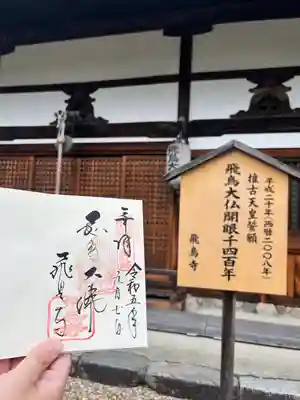 平成二十年(西暦二〇〇八年)
推古天皇誓願
飛鳥大仏開眼千四百年
飛鳥寺
奉拝
令和五年
飛鳥大佛
飛鳥寺